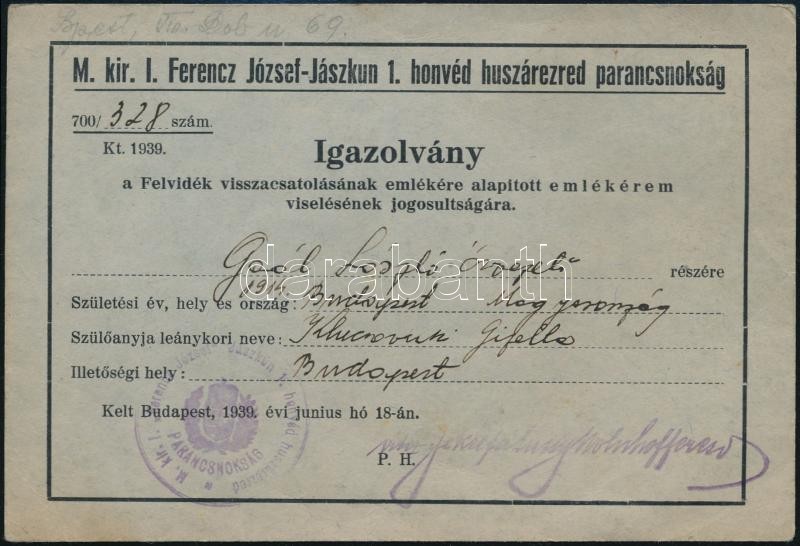 Bpest, Dob u 69.
M. kir. I. Ferenc József-Jászkun 1. honvéd huszárezred parancsnokság
700/328 szám.
Kt. 1939.
Igazolvány
a Felvidék visszacsatolásának emlékére alapitott emlékérem
viselésének jogosultságára.
Gaál László őrvezető részére
darabanth
Születési év, hely és ország: 1914. Budapest Magyarország
Szülőanyja leánykori neve: Gizella
Illetőségi hely: Budapest
Kelt Budapest, 1939. évi junius hó 18-án.
P. H.
M. kir. I. Ferenc József Jászkun 1. honvéd huszárezred
PARANCSNOKSÁG